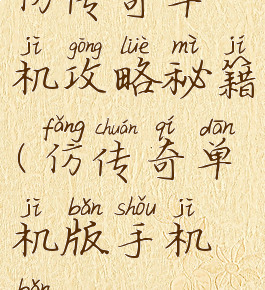 仿传奇单
jī gōng lüè mì jí
机攻略秘籍
fǎng chuán qí dān
(仿传奇单
jī bǎn shǒu jī
机版手机
bǎn